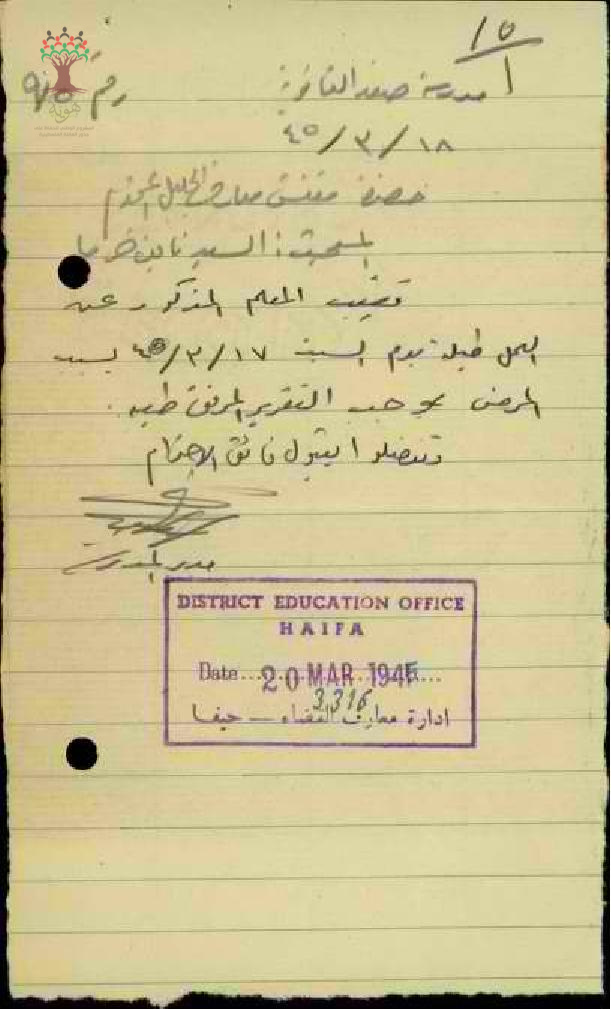 ١٥
١
مدرسة صفد الثانوية رقم ٩/٥
١٨/٣/٤٥
حضرة مفتش معارف الجليل المحترم
المبحث: السيد نايف خرما
تغيب المعلم المذكور عن
العمل طيلة يوم السبت ١٧/٣/٤٥ بسبب
المرض بموجب التقرير المرفق طيه.
وتفضلوا بقبول فائق الاحترام
مدير المدرسة
DISTRICT EDUCATION OFFICE
HAIFA
Date 20 MAR 1945
3316
ادارة معارف القضاء – حيفا